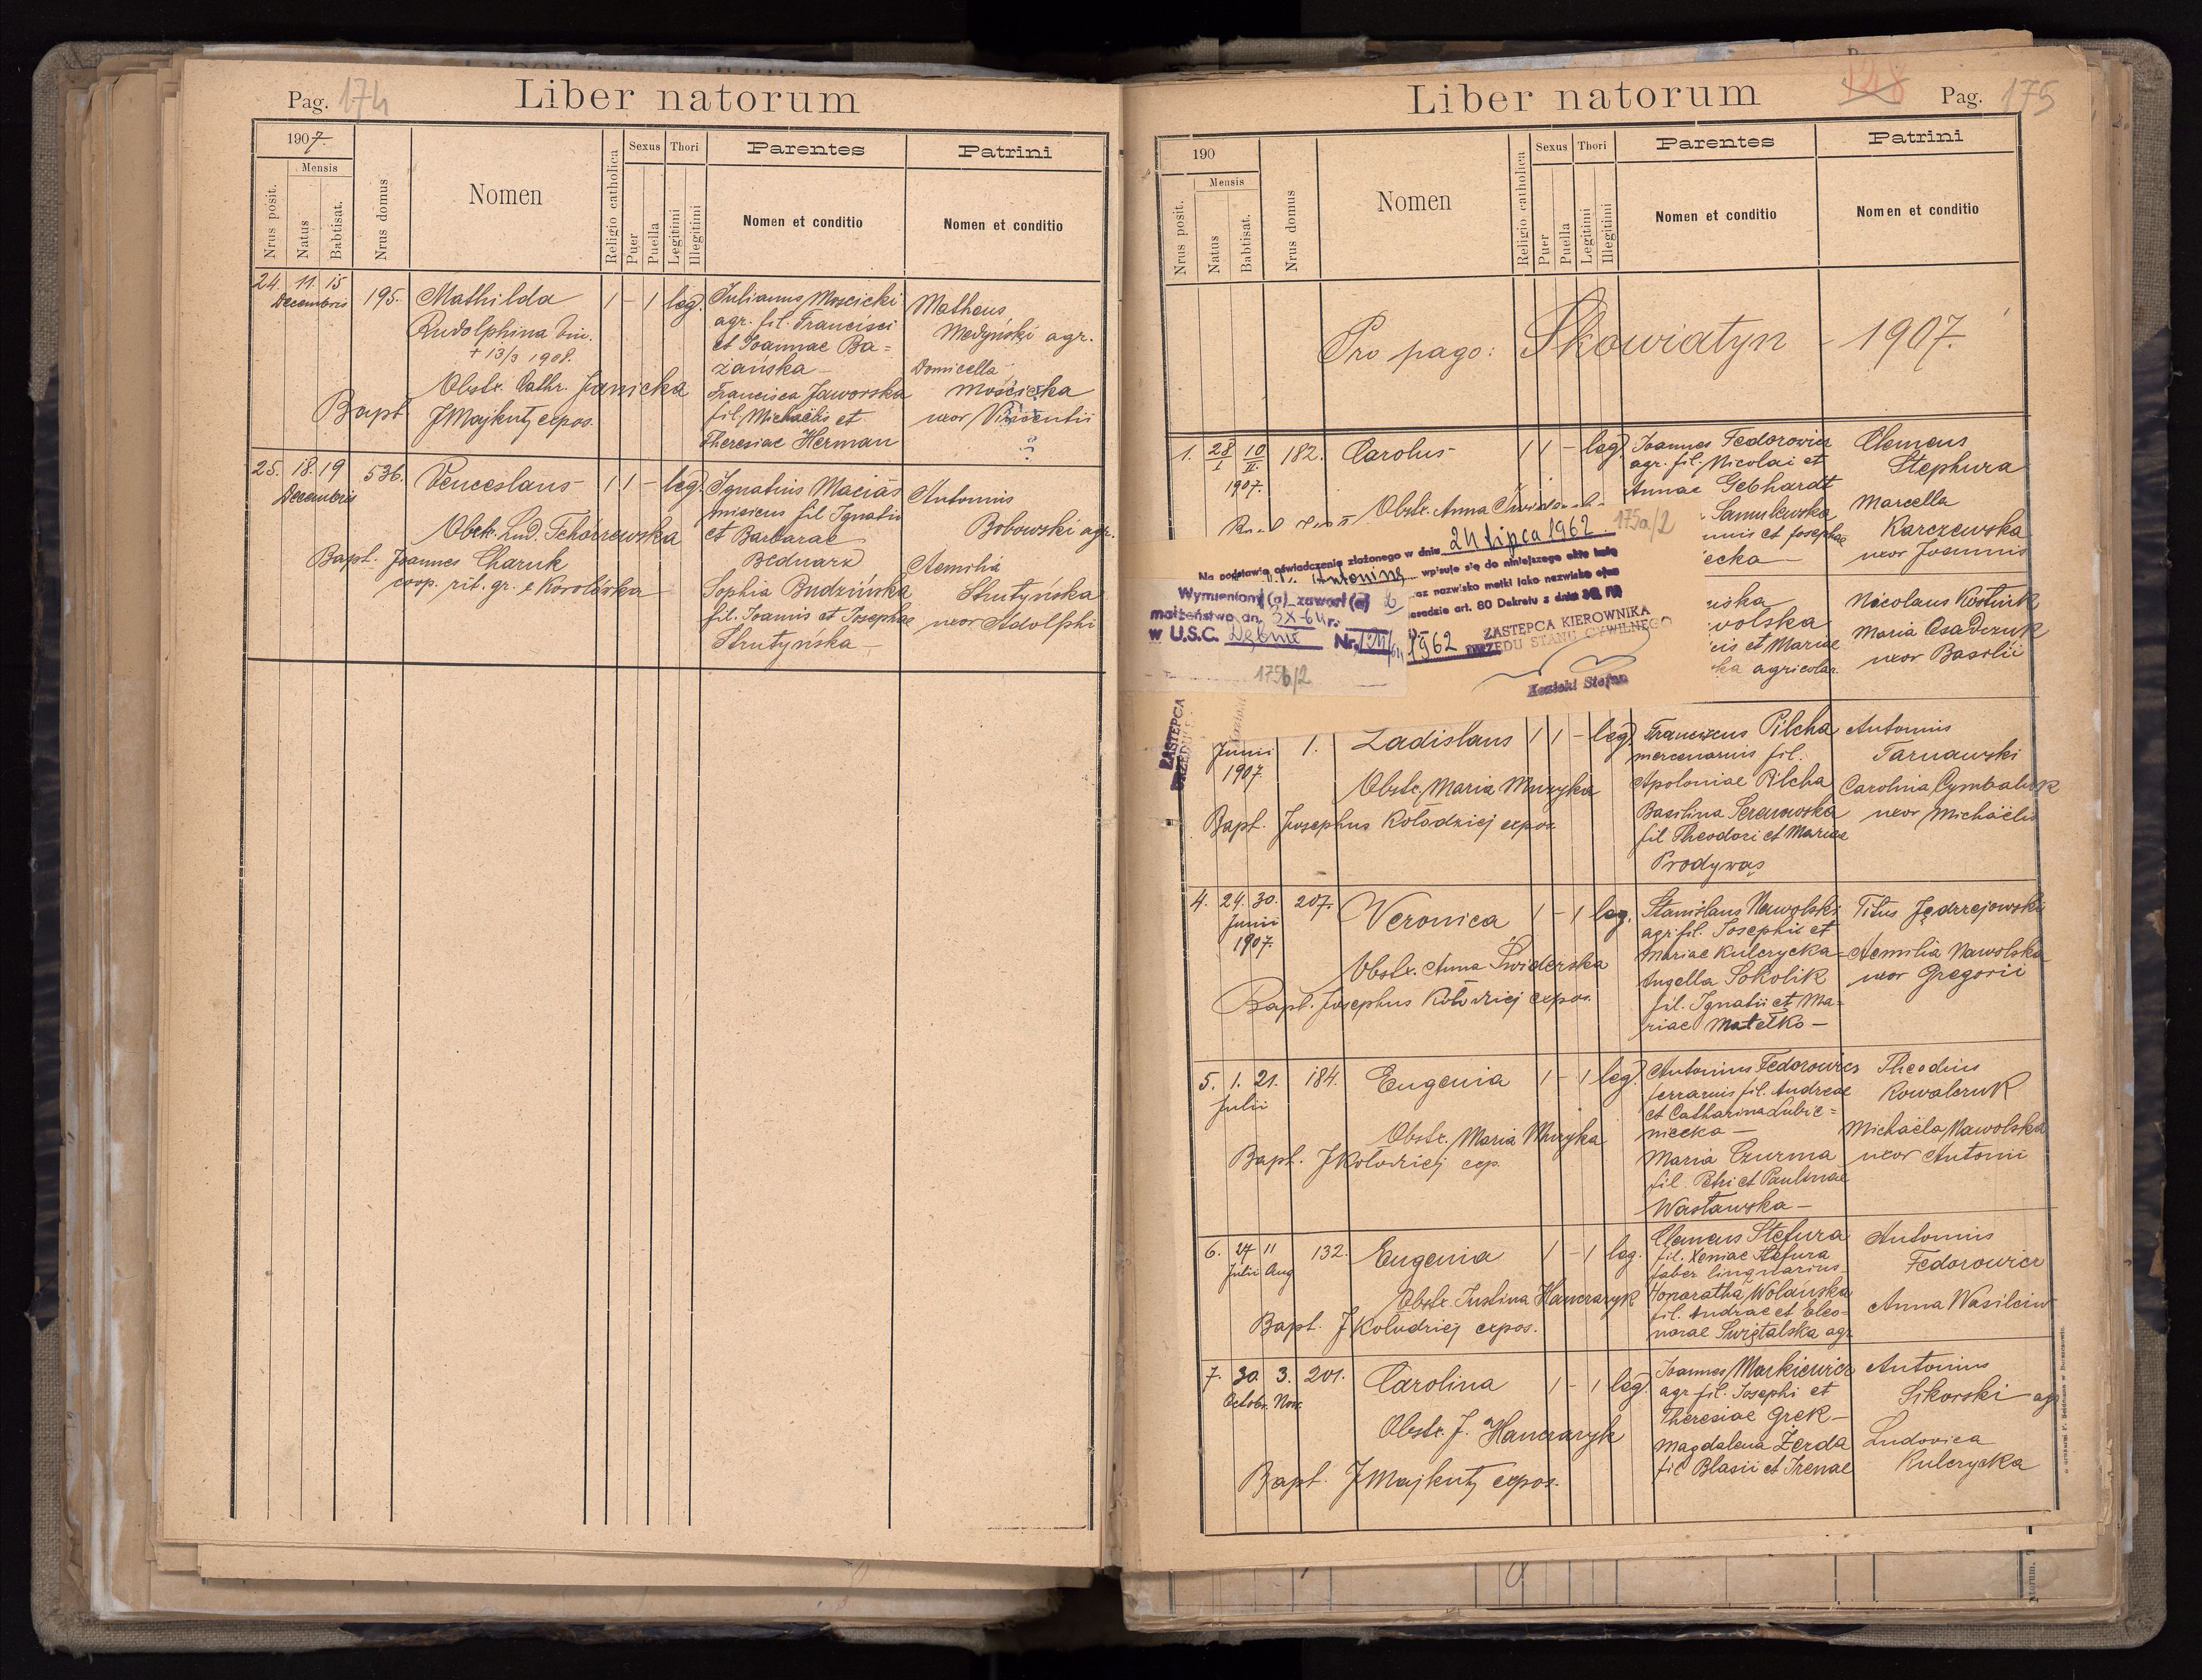 Pag. 174 Liber natorum
1907.
Nrus posit.
Mensis
Natus
Babtisat.
Nrus domus
Nomen
Religio catholica
Sexus
Puer
Puella
Thori
Legitimi
Illegitimi
Parentes
Nomen et conditio
Patrini
Nomen et conditio
24. 11. 15 Decembris 195. Mathilda 1 - 1 leg.
Rudolphina
+ 13/3 1908.
Obstr. Cathr. Janicka
Bapt. J Majkutz expos.
Julianus Moscicki
agr. fil. Francisci
et Joannae Ba=
zańska -
Francisca Jaworska
fil. Michaelis et
Theresiae Herman
Matheus
Medyński agr.
Domicella
Mościcka
uxor Vincentii
25. 18. 19 Decembris 536. Venceslaus 1 1 - leg.
Obstr. Lud. Tchórzewska
Bapt. Joannes Charuk
coop. rit. gr. e Korolówka
Ignatius Macias
fil Ignatii
et Barbarae
Bednarz
Sophia Budzińska
fil. Joannis et Josephae
Strutyńska -
Antonius
Bobowski agr.
Aemilia
Strutyńska
uxor Adolfhi
Liber natorum 128 Pag. 175
190
Nrus posit.
Mensis
Natus
Babtisat.
Nrus domus
Nomen
Religio catholica
Sexus
Puer
Puella
Thori
Legitimi
Illegitimi
Parentes
Nomen et conditio
Patrini
Nomen et conditio
Pro pago: Skowiatyn - 1907.
1. 28/I 10/II. 1907. 182. Carolus - 1 1 - leg.
Obstr. Anna
Joannes Fedorowicz
agr. fil. Nicolai et
Annae Gebhardt
Samulewska
et Josephae
ecka -
Clemens
Stephura
Marcella
Karczewska
uxor Joannis
175a/2
Na podstawie oświadczenia złożonego w dniu 24 lipca 1962
Antoninę wpisuje się do niniejszego aktu
oraz nazwisko matki jako nazwisko ojca
zasadzie art. 80 Dekretu z dnia
1962
ZASTĘPCA KIEROWNIKA
URZĘDU STANU CYWILNEGO
Kozicki Stefan
Wymieniony(a) zawarł(a)
małżeństwo dn. 3 X-64 r.
w U.S.C. Dębnie Nr.
175b/2
ZASTĘPCA
URZĘDU
wolska
et Mariae
agricolae
Nicolaus Kostiuk
Maria Osadczuk
uxor Basilii
Junii 1907. 1. Ladislaus 1 1 - leg.
Obstr. Maria Muzyka
Bapt. Josephus Kołodziej expos.
Franciscus Pilcha
mercenarius fil.
Apoloniae Pilcha
Basilina Serenowska
fil Theodori et Mariae
Prodywąs
Antonius
Tarnawski
Carolina Cymbaluk
uxor Michaëlis
4. 24. 30. Junii 1907. 207. Veronica 1 - 1 leg.
Obstr. Anna Świderska
Bapt. Josephus Kołodziej expos.
Stanislaus Nawolski
agr. fil. Josephi et
Mariae Kulczycka -
Angella Sokolik
fil. Ignatii et Ma=
riae Matełko -
Titus Jędrzejowski
Aemilia Nawolska
uxor Gregorii
5. 1. 21. Julii 184. Eugenia 1 - 1 leg.
Obstr. Maria Muzyka
Bapt. J Kołodziej exp.
Antonius Fedorowicz
ferrarius fil. Andreae
et Catharina Lubie=
niecka -
Maria Czurma
fil. Petri et Paulinae
Wasławska -
Theodius
Kowalczuk
Michaëla Nawolska
uxor Antonii
6. 27 11 Julii Aug 132. Eugenia 1 - 1 leg.
Obstr. Justina Hanczaryk
Bapt. J Kołodziej expos.
Clemens Stefura
fil. Xeniae Stefura
faber lingnarius
Honoratha Wolańska
fil. Andreae et Eleo=
norae Świątalska agr.
Antonius
Fedorowicz
Anna Wasilciw
7. 30. 3. Octobr. Nov. 201. Carolina 1 - 1 leg.
Obstr. J. Hanczaryk
Bapt. J Majkutz expos.
Joannes Markiewicz
agr. fil. Josephi et
Theresiae Grek -
Magdalena Zerda
fil Blasii et Irenae
Antonius
Sikorski agr.
Ludovica
Kulczycka